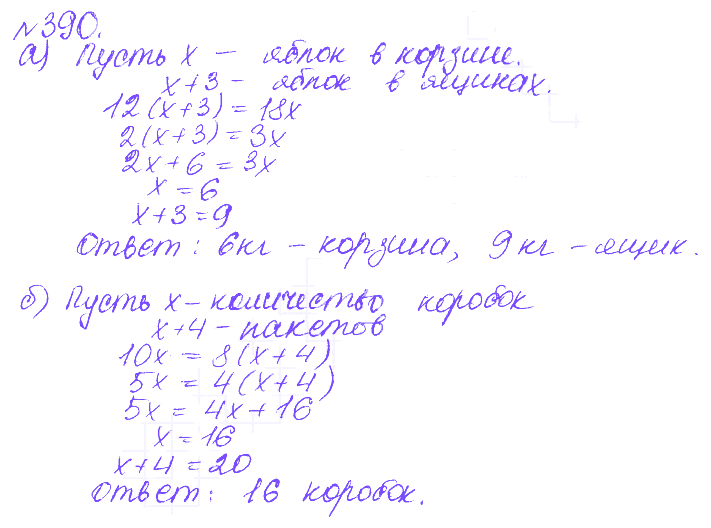 №390.
а) Пусть x – яблок в корзине.
x+3 – яблок в ящиках.
12(x+3) = 18x
2(x+3) = 3x
2x + 6 = 3x
x = 6
x+3 = 9
Ответ: 6кг – корзина, 9кг – ящик.
б) Пусть x – количество коробок
x+4 – пакетов
10x = 8(x+4)
5x = 4(x+4)
5x = 4x+16
x = 16
x+4 = 20
Ответ: 16 коробок.